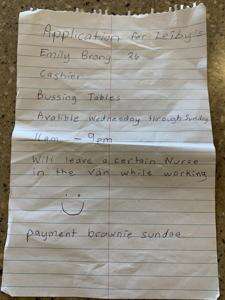 Application for Leiby's
Emily Brong 26
Cashier
Bussing Tables
Avalible Wednesday through Sunday
11am - 9pm
Will leave a certain Nurse
in the van while working
payment brownie sundae